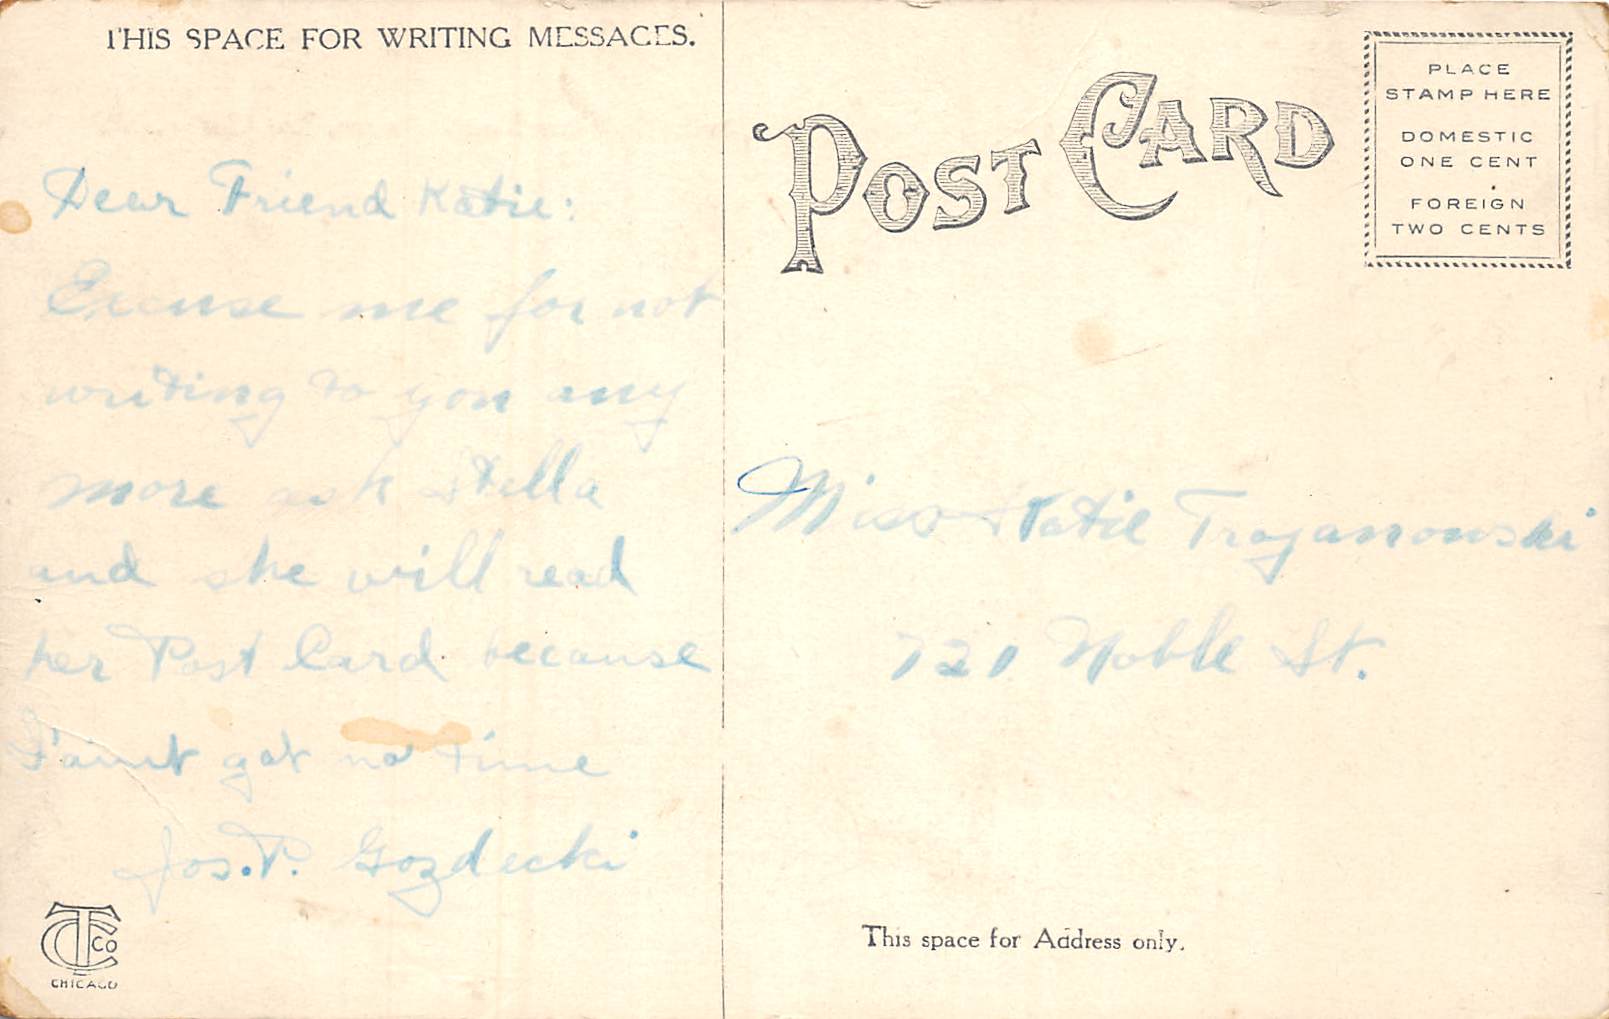 THIS SPACE FOR WRITING MESSAGES.
Dear Friend Katie:
Excuse me for not
writing to you any
more ask Stella
and she will read
her Post Card because
I aint got no time
Jos. P. Gozdecki
CTCo
CHICAGO
POST CARD
PLACE
STAMP HERE
DOMESTIC
ONE CENT
FOREIGN
TWO CENTS
Miss Katie Trojanowski
721 Noble St.
This space for Address only.